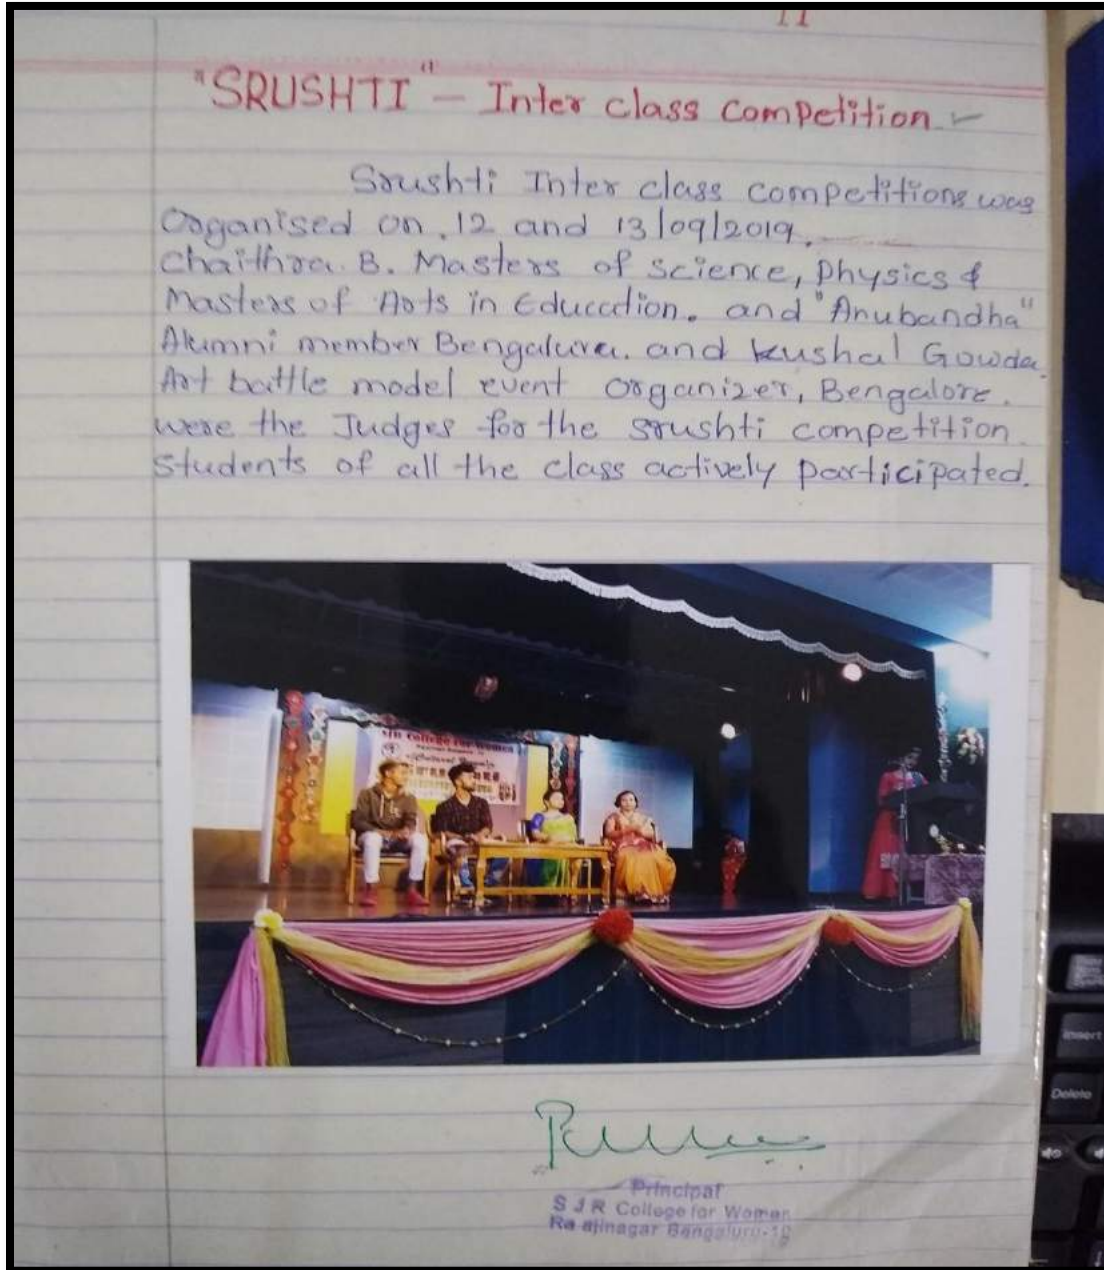 11
"SRUSHTI" - Inter class competition
Srushti Inter class competitions was
Organised on 12 and 13/09/2019.
Chaithra. B. Masters of science, Physics &
Masters of Arts in Education. and "Anubandha"
Alumni member Bengaluru. and Kushal Gowda.
Art battle model event organizer, Bengalore.
were the Judges for the srushti competition.
Students of all the class actively participated.
SJR College for Women
Principal
S J R College for Women
Ra ajinagar Bengaluru-10
Insert
Delete